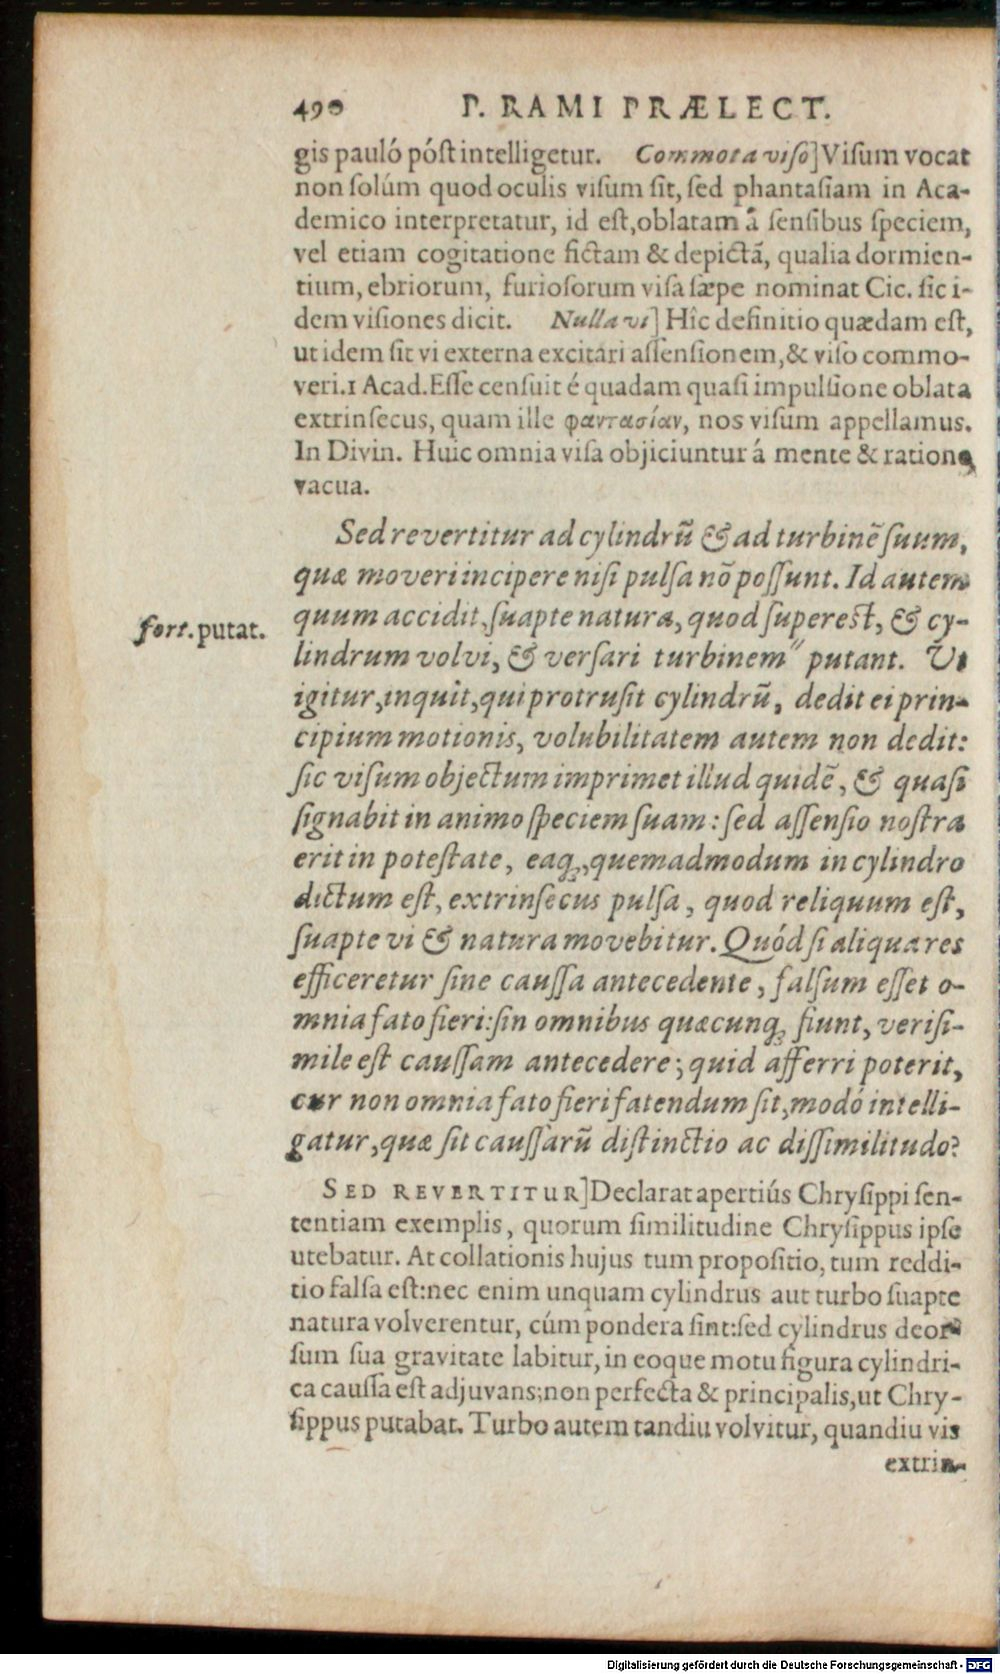 490 P. RAMI PRÆLECT.
gis pauló póst intelligetur. Commota viso] Visum vocat
non solúm quod oculis visum sit, sed phantasiam in Aca-
demico interpretatur, id est, oblatam â sensibus speciem,
vel etiam cogitatione fictam & depictã, qualia dormien-
tium, ebriorum, furiosorum visa sæpe nominat Cic. sic i-
dem visiones dicit. Nulla vi] Hîc definitio quædam est,
ut idem sit vi externa excitari assensionem, & viso commo-
veri. 1 Acad. Esse censuit é quadam quasi impulsione oblata
extrinsecus, quam ille φαντασίαν, nos visum appellamus.
In Divin. Huic omnia visa objiciuntur á mente & ratione
vacua.
Sed revertitur ad cylindrũ & ad turbinẽ suum,
quæ moveri incipere nisi pulsa nõ possunt. Id autem
quum accidit, suapte natura, quod superest, & cy-
fort. putat.
lindrum volvi, & versari turbinem" putant. Ut
igitur, inquit, qui protrusit cylindrũ, dedit ei prin-
cipium motionis, volubilitatem autem non dedit:
sic visum objectum imprimet illud quidẽ, & quasi
signabit in animo speciem suam: sed assensio nostra
erit in potestate, eaq;, quemadmodum in cylindro
dictum est, extrinsecus pulsa, quod reliquum est,
suapte vi & natura movebitur. Quód si aliqua res
efficeretur sine caussa antecedente, falsum esset o-
mnia fato fieri: sin omnibus quæcunq; fiunt, verisi-
mile est caussam antecedere; quid afferri poterit,
cur non omnia fato fieri fatendum sit, modó intelli-
gatur, quæ sit caussarũ distinctio ac dissimilitudo?
SED REVERTITUR] Declarat apertiús Chrysippi sen-
tentiam exemplis, quorum similitudine Chrysippus ipse
utebatur. At collationis hujus tum propositio, tum reddi-
tio falsa est: nec enim unquam cylindrus aut turbo suapte
natura volverentur, cúm pondera sint: sed cylindrus deor-
sum sua gravitate labitur, in eoque motu figura cylindri-
ca caussa est adjuvans; non perfecta & principalis, ut Chry-
sippus putabat. Turbo autem tandiu volvitur, quandiu vis
extrin-
Digitalisierung gefördert durch die Deutsche Forschungsgemeinschaft - DFG